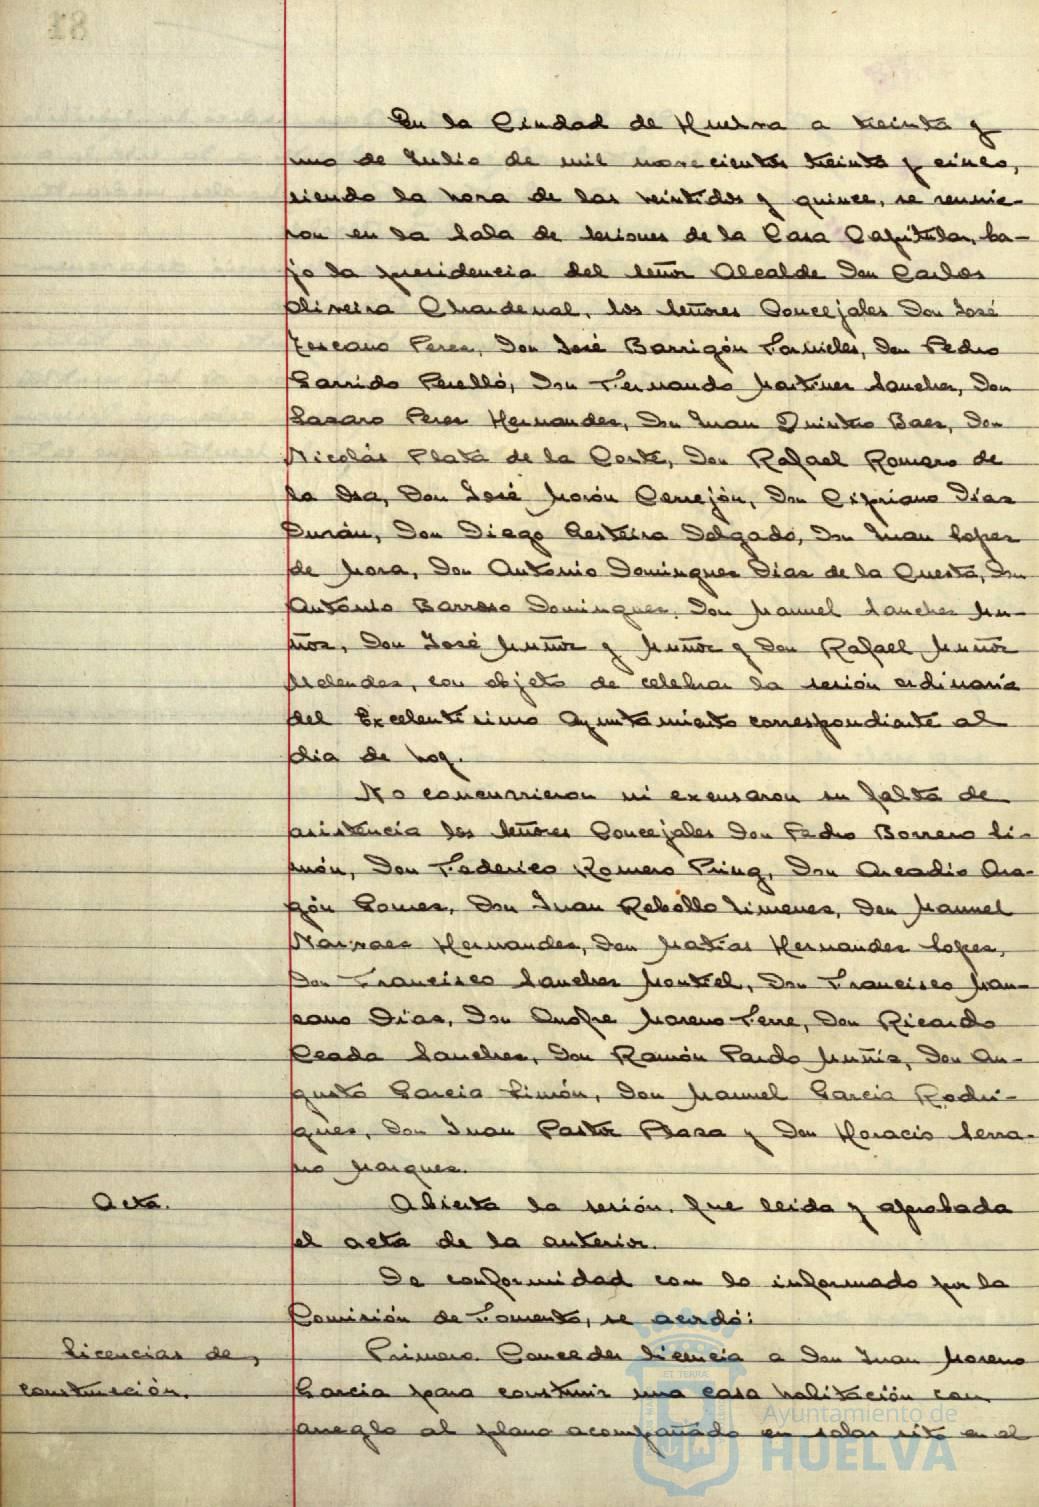 En la Ciudad de Huelva a treinta y
uno de Julio de mil novecientos treinta y cinco,
siendo la hora de las veintidos y quince, se reunie-
ron en la Sala de Sesiones de la Casa Capitular, ba-
jo la presidencia del señor Alcalde Don Carlos
Oliveira Chardenal, los Señores Concejales Don José
Toscano Perez, Don José Barrigón Fornieles, Don Pedro
Garrido Perelló, Don Fernando Martinez Sanchez, Don
Lazaro Perez Hernandez, Don Juan Quintero Baez, Don
Nicolás Plata de la Corte, Don Rafael Romero de
la Osa, Don José Morón Cerrejón, Don Cipriano Diaz
Durán, Don Diego Gesteira Delgado, Don Juan Lopez
de Mora, Don Antonio Dominguez Diaz de la Cuesta, Don
Antonio Barroso Dominguez, Don Manuel Sanchez Mu-
ñoz, Don José Muñoz y Muñoz y Don Rafael Muñoz
Melendez, con objeto de celebrar la sesión ordinaria
del Excelentisimo Ayuntamiento correspondiente al
dia de hoy.
No concurrieron ni excusaron su falta de
asistencia los Señores Concejales Don Pedro Borrero Li-
món, Don Federico Romero Pring, Don Arcadio Ara-
gón Gomez, Don Juan Rebollo Jimenez, Don Manuel
Narvaez Hernandez, Don Matias Hernandez Lopez,
Don Francisco Sanchez Montiel, Don Francisco Man-
zano Diaz, Don Onofre Moreno Terre, Don Ricardo
Sanchez, Don Ramón Pardo Muñiz, Don Au-
gusto Garcia Limón, Don Manuel Garcia Rodri-
guez, Don Juan Pastor Plaza y Don Horacio Serra-
no Marquez.
Acta.
Abierta la sesión. fue leida y aprobada
el acta de la anterior.
De conformidad con lo informado por la
Comisión de Fomento, se acordó:
Licencias de,
construcción.
Primero. Conceder licencia a Don Juan Moreno
Garcia para construir una casa habitación con
arreglo al plano acompañado en solar sito en el
Ayuntamiento de
HUELVA